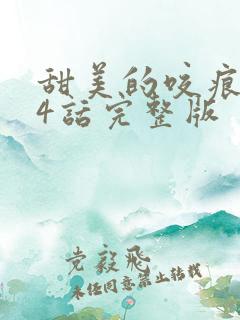 甜美的咬痕
4话完整版
党毅飛
未经同意禁止转载